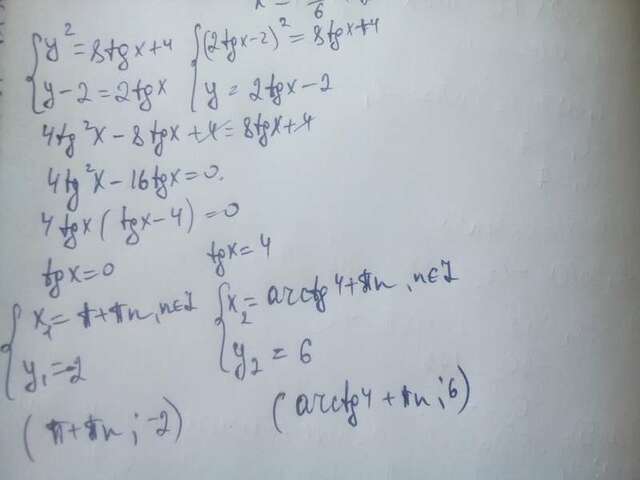 x = /6
{y² = 8tgx+4 {(2tgx-2)² = 8tgx+4
{y-2 = 2tgx {y = 2tgx-2
4tg²x - 8tgx + 4 = 8tgx + 4
4tg²x - 16tgx = 0.
4tgx(tgx-4) = 0
tgx = 0 tgx = 4
{x₁ = π+πn, n∈Z {x₂ = arctg4+πn, n∈Z
{y₁ = -2 {y₂ = 6
(π+πn; -2) (arctg4+πn; 6)